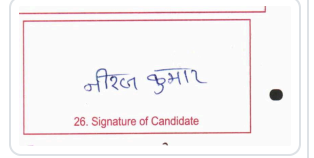 नीरज कुमार
26. Signature of Candidate